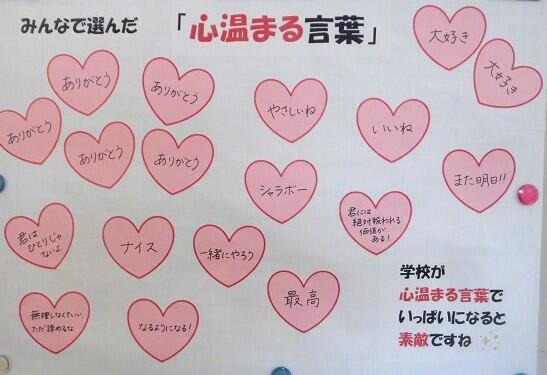 みんなで選んだ 「心温まる言葉」
大好き
大好き
ありがとう
ありがとう
やさしいね
いいね
ありがとう
ありがとう
ありがとう
シャラボー
また明日!!
君は
ひとりじゃ
ないよ
ナイス
一緒にやろう
君には
絶対報われる
価値が
ある!
最高
無理しなくていい
ただ諦めるな
なるようになる!
学校が
心温まる言葉で
いっぱいになると
素敵ですね